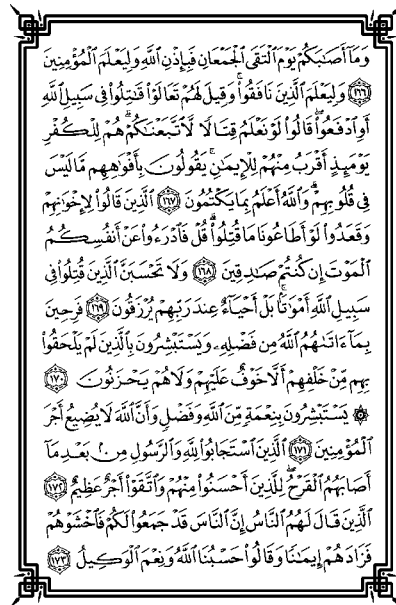 وَمَآ أَصَٰبَكُمْ يَوْمَ ٱلْتَقَى ٱلْجَمْعَانِ فَبِإِذْنِ ٱللَّهِ وَلِيَعْلَمَ ٱلْمُؤْمِنِينَ
١٦٦ وَلِيَعْلَمَ ٱلَّذِينَ نَافَقُوا۟ ۚ وَقِيلَ لَهُمْ تَعَالَوْا۟ قَٰتِلُوا۟ فِى سَبِيلِ ٱللَّهِ
أَوِ ٱدْفَعُوا۟ ۖ قَالُوا۟ لَوْ نَعْلَمُ قِتَالًا لَّٱتَّبَعْنَٰكُمْ ۗ هُمْ لِلْكُفْرِ
يَوْمَئِذٍ أَقْرَبُ مِنْهُمْ لِلْإِيمَٰنِ ۚ يَقُولُونَ بِأَفْوَٰهِهِم مَّا لَيْسَ
فِى قُلُوبِهِمْ ۗ وَٱللَّهُ أَعْلَمُ بِمَا يَكْتُمُونَ ١٦٧ ٱلَّذِينَ قَالُوا۟ لِإِخْوَٰنِهِمْ
وَقَعَدُوا۟ لَوْ أَطَاعُونَا مَا قُتِلُوا۟ ۗ قُلْ فَٱدْرَءُوا۟ عَنْ أَنفُسِكُمُ
ٱلْمَوْتَ إِن كُنتُمْ صَٰدِقِينَ ١٦٨ وَلَا تَحْسَبَنَّ ٱلَّذِينَ قُتِلُوا۟ فِى
سَبِيلِ ٱللَّهِ أَمْوَٰتًۢا ۚ بَلْ أَحْيَآءٌ عِندَ رَبِّهِمْ يُرْزَقُونَ ١٦٩ فَرِحِينَ
بِمَآ ءَاتَىٰهُمُ ٱللَّهُ مِن فَضْلِهِۦ وَيَسْتَبْشِرُونَ بِٱلَّذِينَ لَمْ يَلْحَقُوا۟
بِهِم مِّنْ خَلْفِهِمْ أَلَّا خَوْفٌ عَلَيْهِمْ وَلَا هُمْ يَحْزَنُونَ ١٧٠
۞ يَسْتَبْشِرُونَ بِنِعْمَةٍ مِّنَ ٱللَّهِ وَفَضْلٍ وَأَنَّ ٱللَّهَ لَا يُضِيعُ أَجْرَ
ٱلْمُؤْمِنِينَ ١٧١ ٱلَّذِينَ ٱسْتَجَابُوا۟ لِلَّهِ وَٱلرَّسُولِ مِنۢ بَعْدِ مَآ
أَصَابَهُمُ ٱلْقَرْحُ ۚ لِلَّذِينَ أَحْسَنُوا۟ مِنْهُمْ وَٱتَّقَوْا۟ أَجْرٌ عَظِيمٌ ١٧٢
ٱلَّذِينَ قَالَ لَهُمُ ٱلنَّاسُ إِنَّ ٱلنَّاسَ قَدْ جَمَعُوا۟ لَكُمْ فَٱخْشَوْهُمْ
فَزَادَهُمْ إِيمَٰنًا وَقَالُوا۟ حَسْبُنَا ٱللَّهُ وَنِعْمَ ٱلْوَكِيلُ ١٧٣